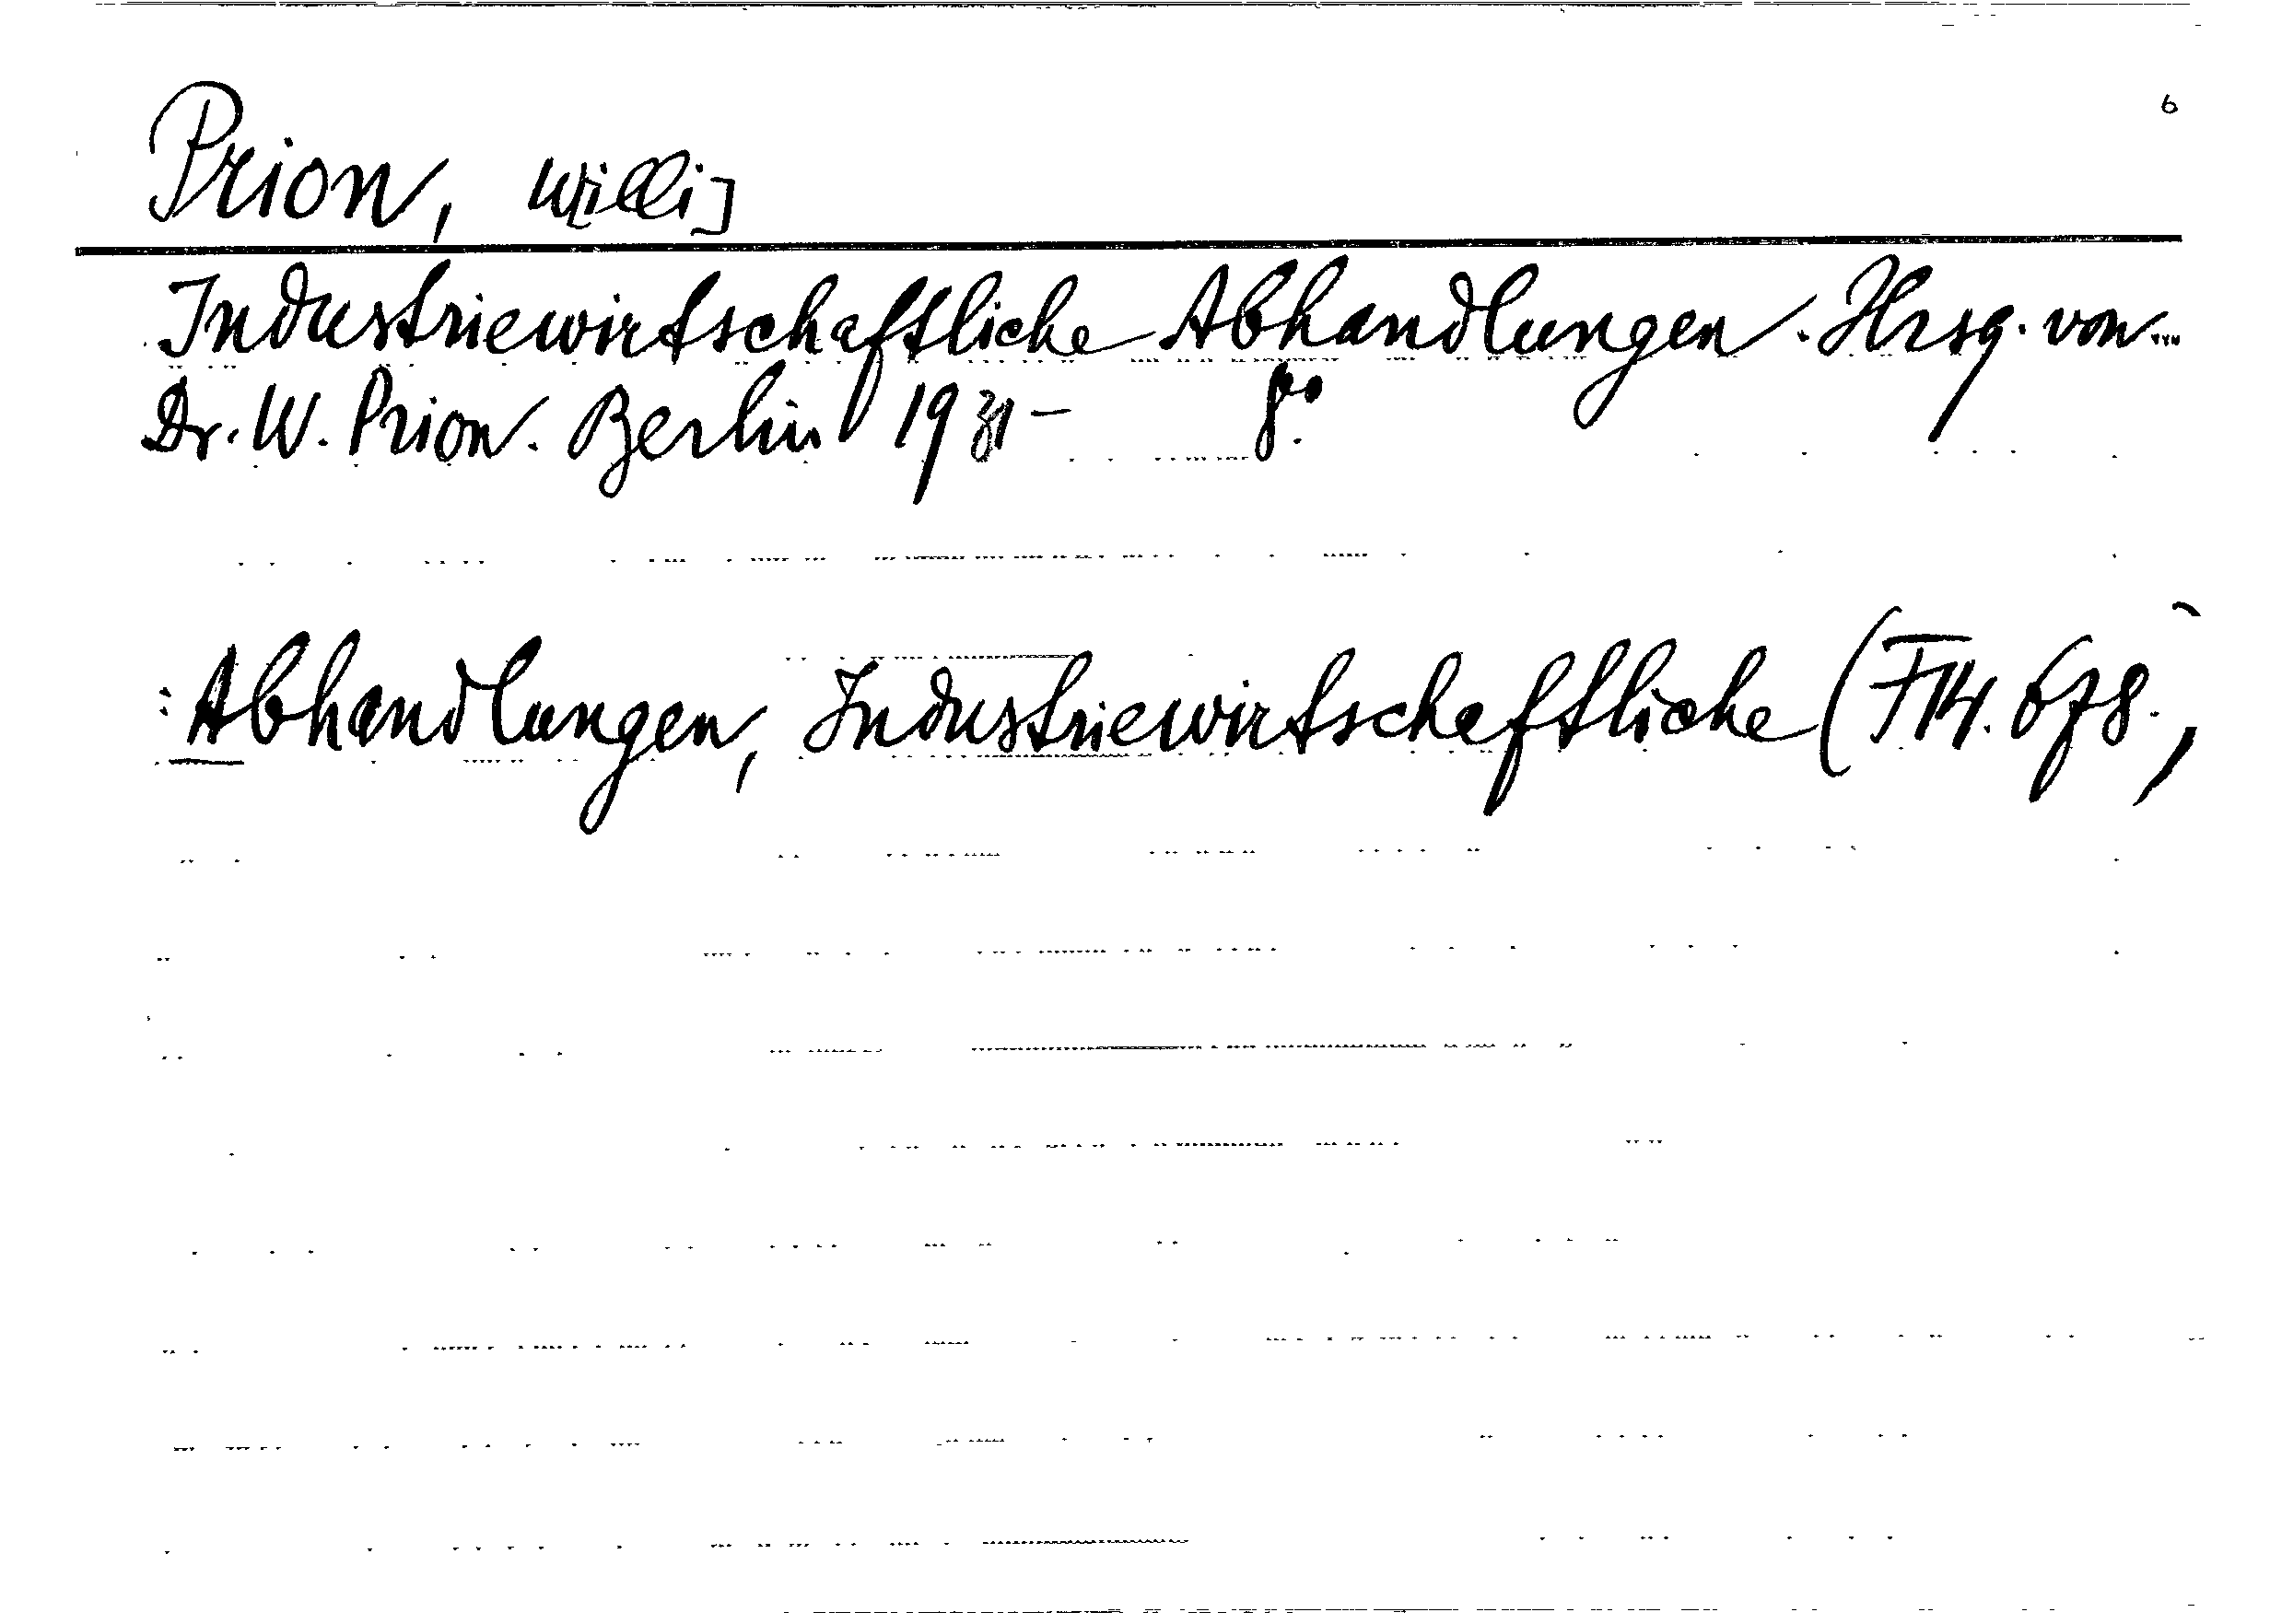 6
Prion, W[illi]
Industriewirtschaftliche Abhandlungen. Hrsg. von...
Dr. W. Prion. Berlin 1931- 8°.
: Abhandlungen, Industriewirtschaftliche (F14. 678.)